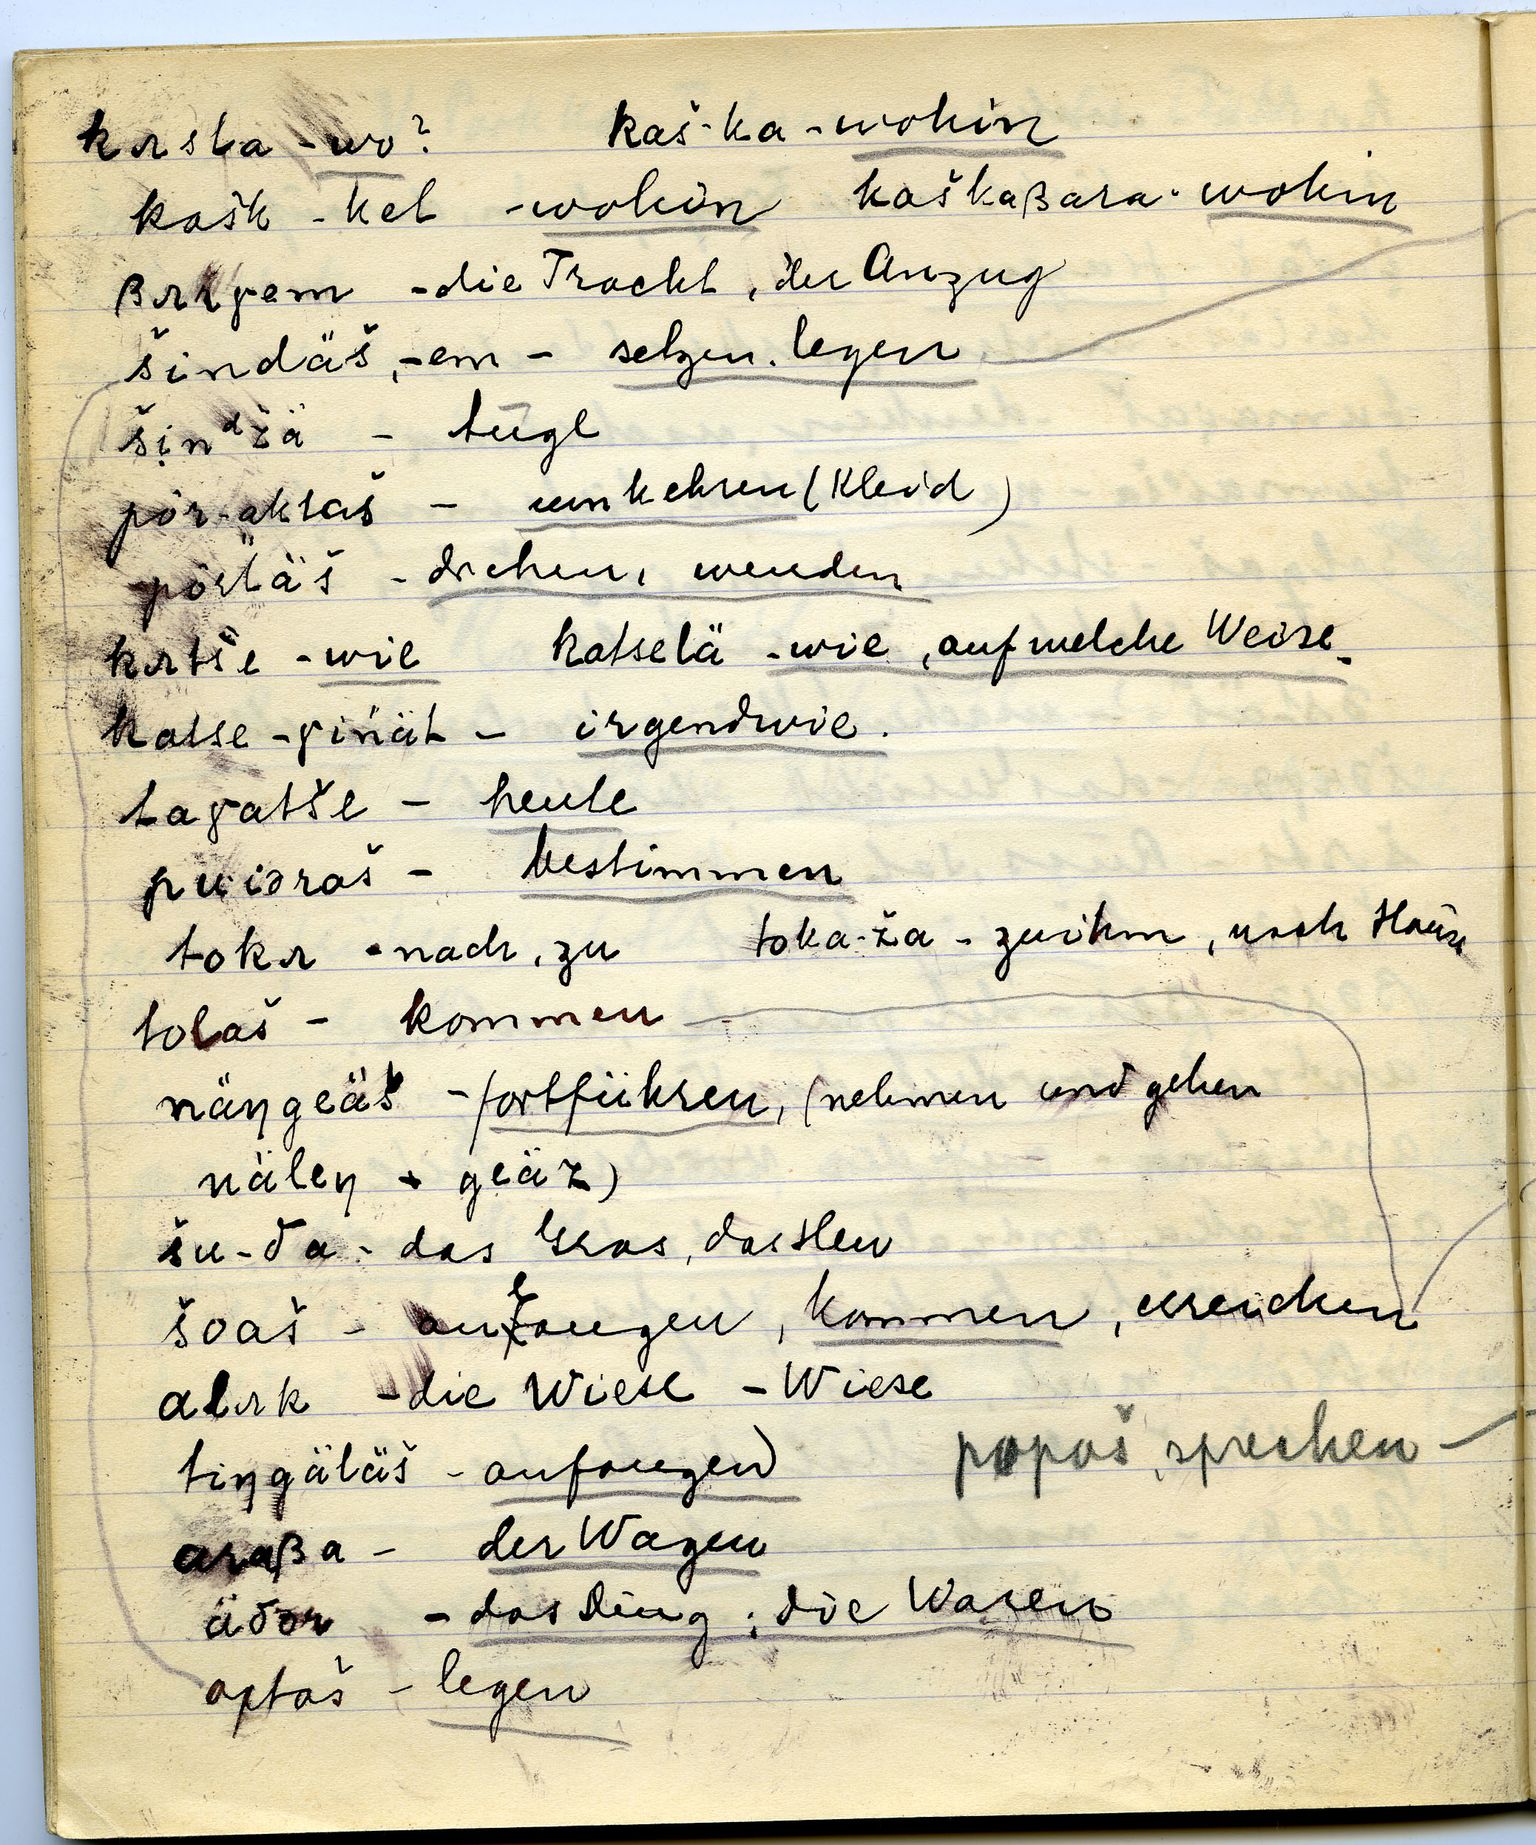 kʌsta - wo? kaš-ka - wohin
kašk - ket - wohin kaškaβara - wohin
βʌrɣem - die Tracht, der Anzug
šindäš, -em - setzen, legen
šinᵈžä - Auge
pör-aktaš - umkehren (Kleid)
pörtäš - drehen, wenden
kʌtše - wie katselä - wie, auf welche Weise.
katse - ɣińät - irgendwie.
taɣatše - heute
puiəraš - bestimmen
tokʌ - nach, zu toka-ža - zu ihm, nach Hause
tolaš - kommen
näŋgeäš - fortführen, (nehmen und gehen
näleŋ + geäš)
šu-δa - das Gras, das Heu
šoaš - anlangen, kommen, erreichen
alʌk - die Wiese - Wiese
tiŋgäläš - anfangen) popaš, sprechen -
araβa - der Wagen
äδər - das Ding; die Waren
optaš - legen